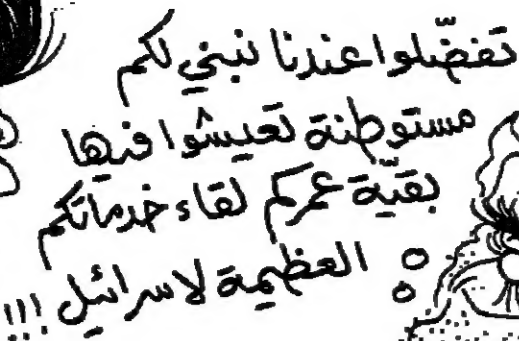 تفضّلوا عندنا نبني لكم
مستوطنة تعيشوا فيها
بقيّة عمركم لقاء خدماتكم
العظيمة لاسرائيل !!!